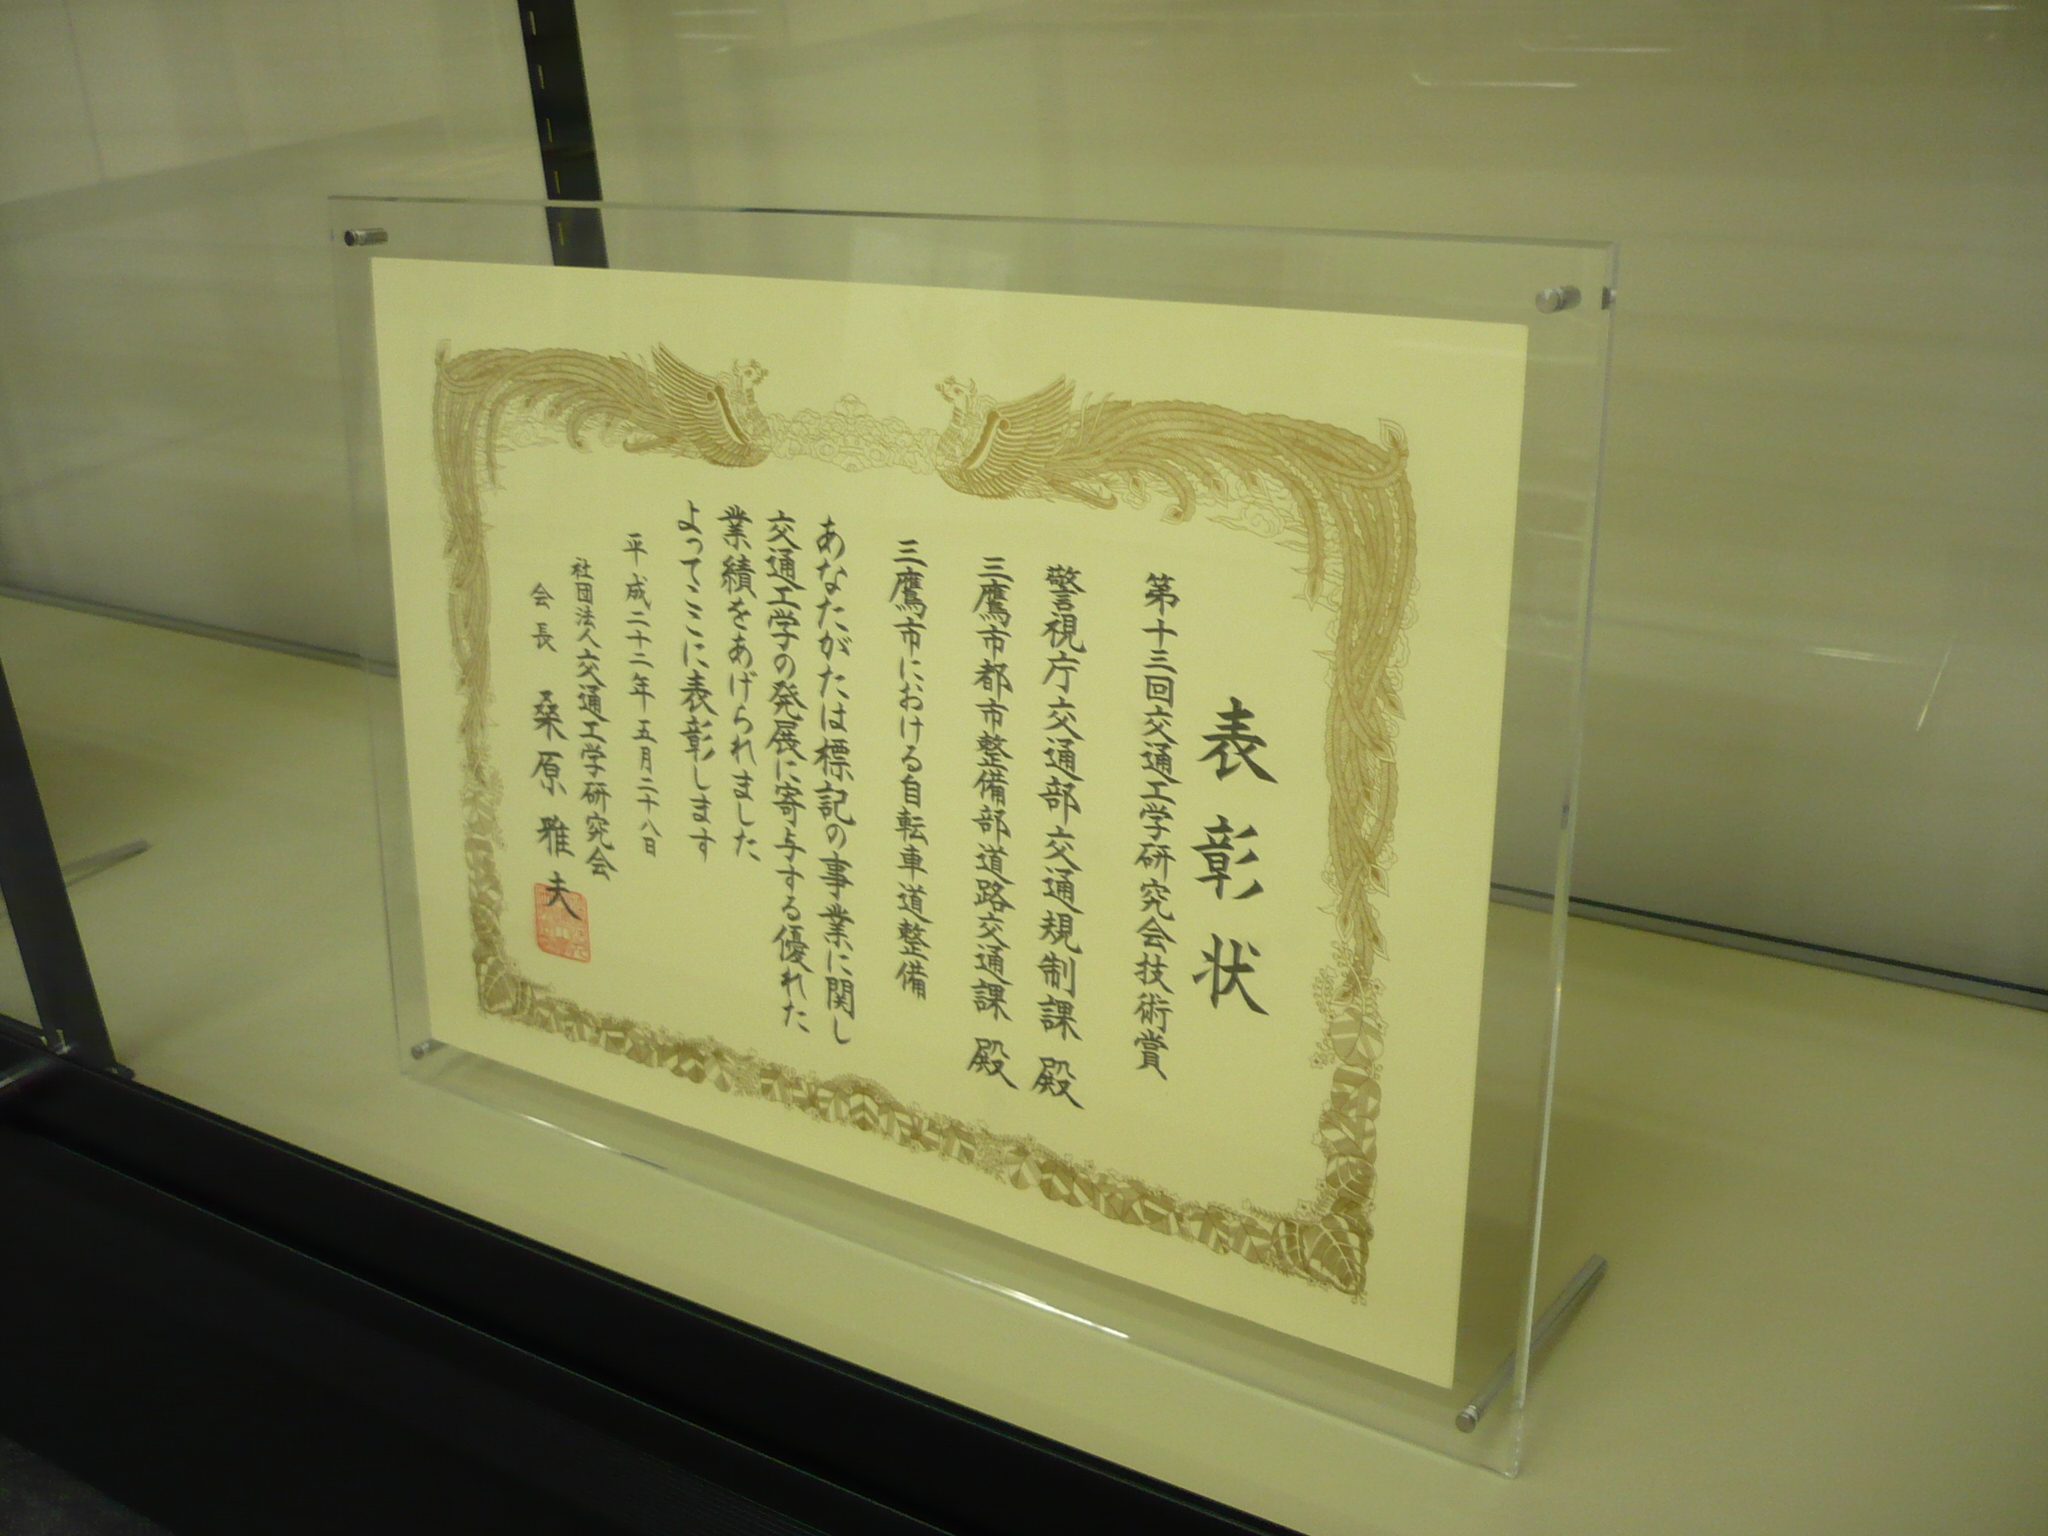 表彰状
第十三回交通工学研究会技術賞
警視庁交通部交通規制課 殿
三鷹市都市整備部道路交通課 殿
三鷹市における自転車道整備
あなたがたは標記の事業に関し
交通工学の発展に寄与する優れた
業績をあげられました
よってここに表彰します
平成二十二年五月二十八日
社団法人交通工学研究会
会長 桑原雅夫